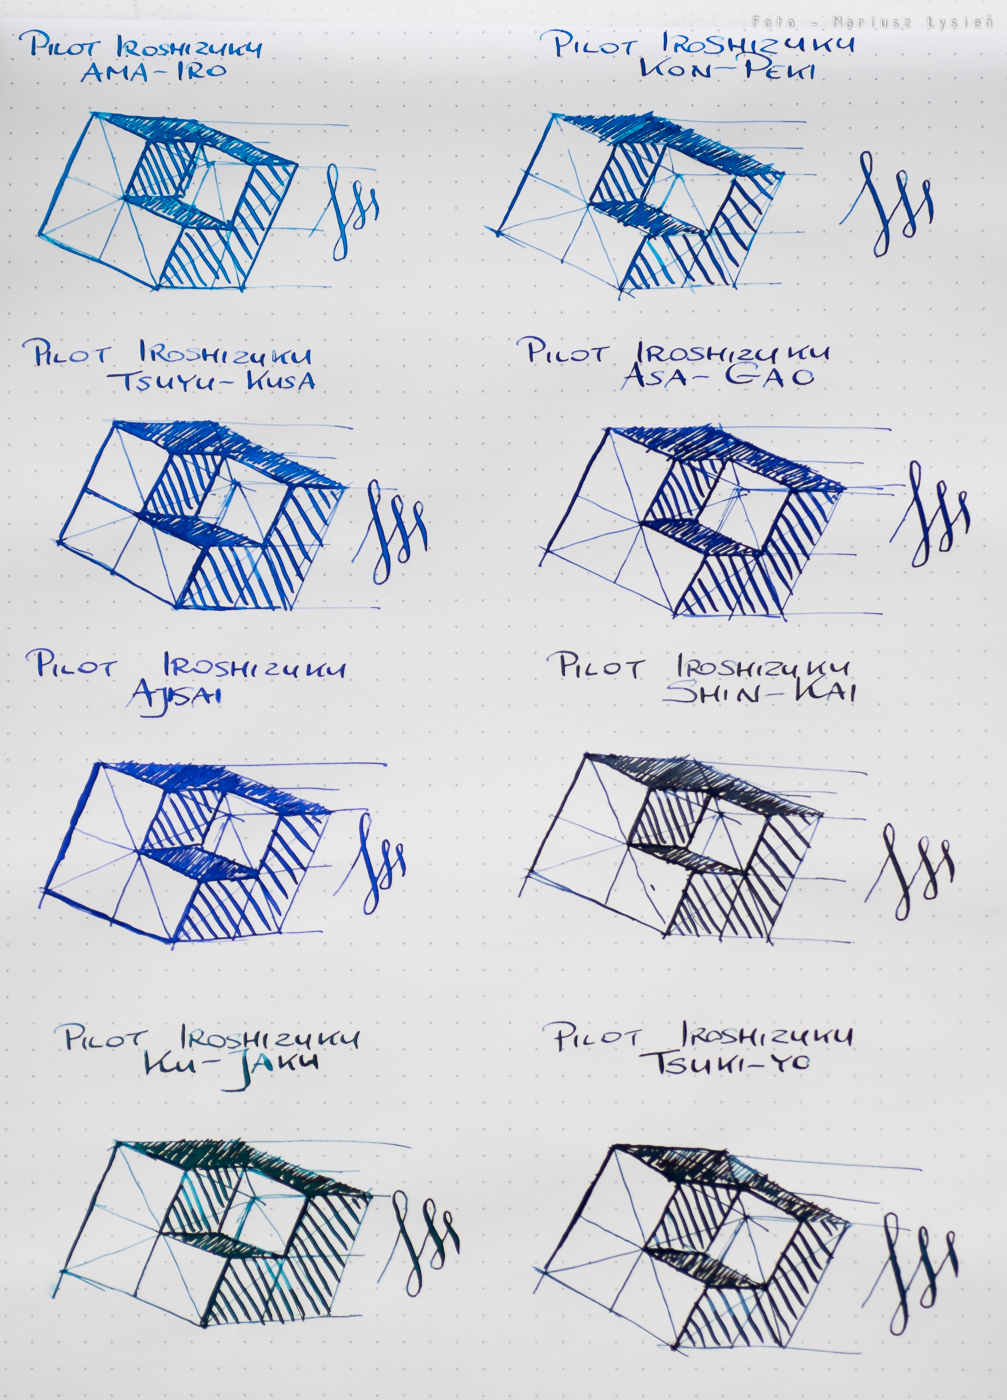 Foto - Mariusz Łysień
PILOT IROSHIZUKU
AMA-IRO
PILOT IROSHIZUKU
KON-PEKI
PILOT IROSHIZUKU
TSUYU-KUSA
PILOT IROSHIZUKU
ASA-GAO
PILOT IROSHIZUKU
AJISAI
PILOT IROSHIZUKU
SHIN-KAI
PILOT IROSHIZUKU
KU-JAKU
PILOT IROSHIZUKU
TSUKI-YO